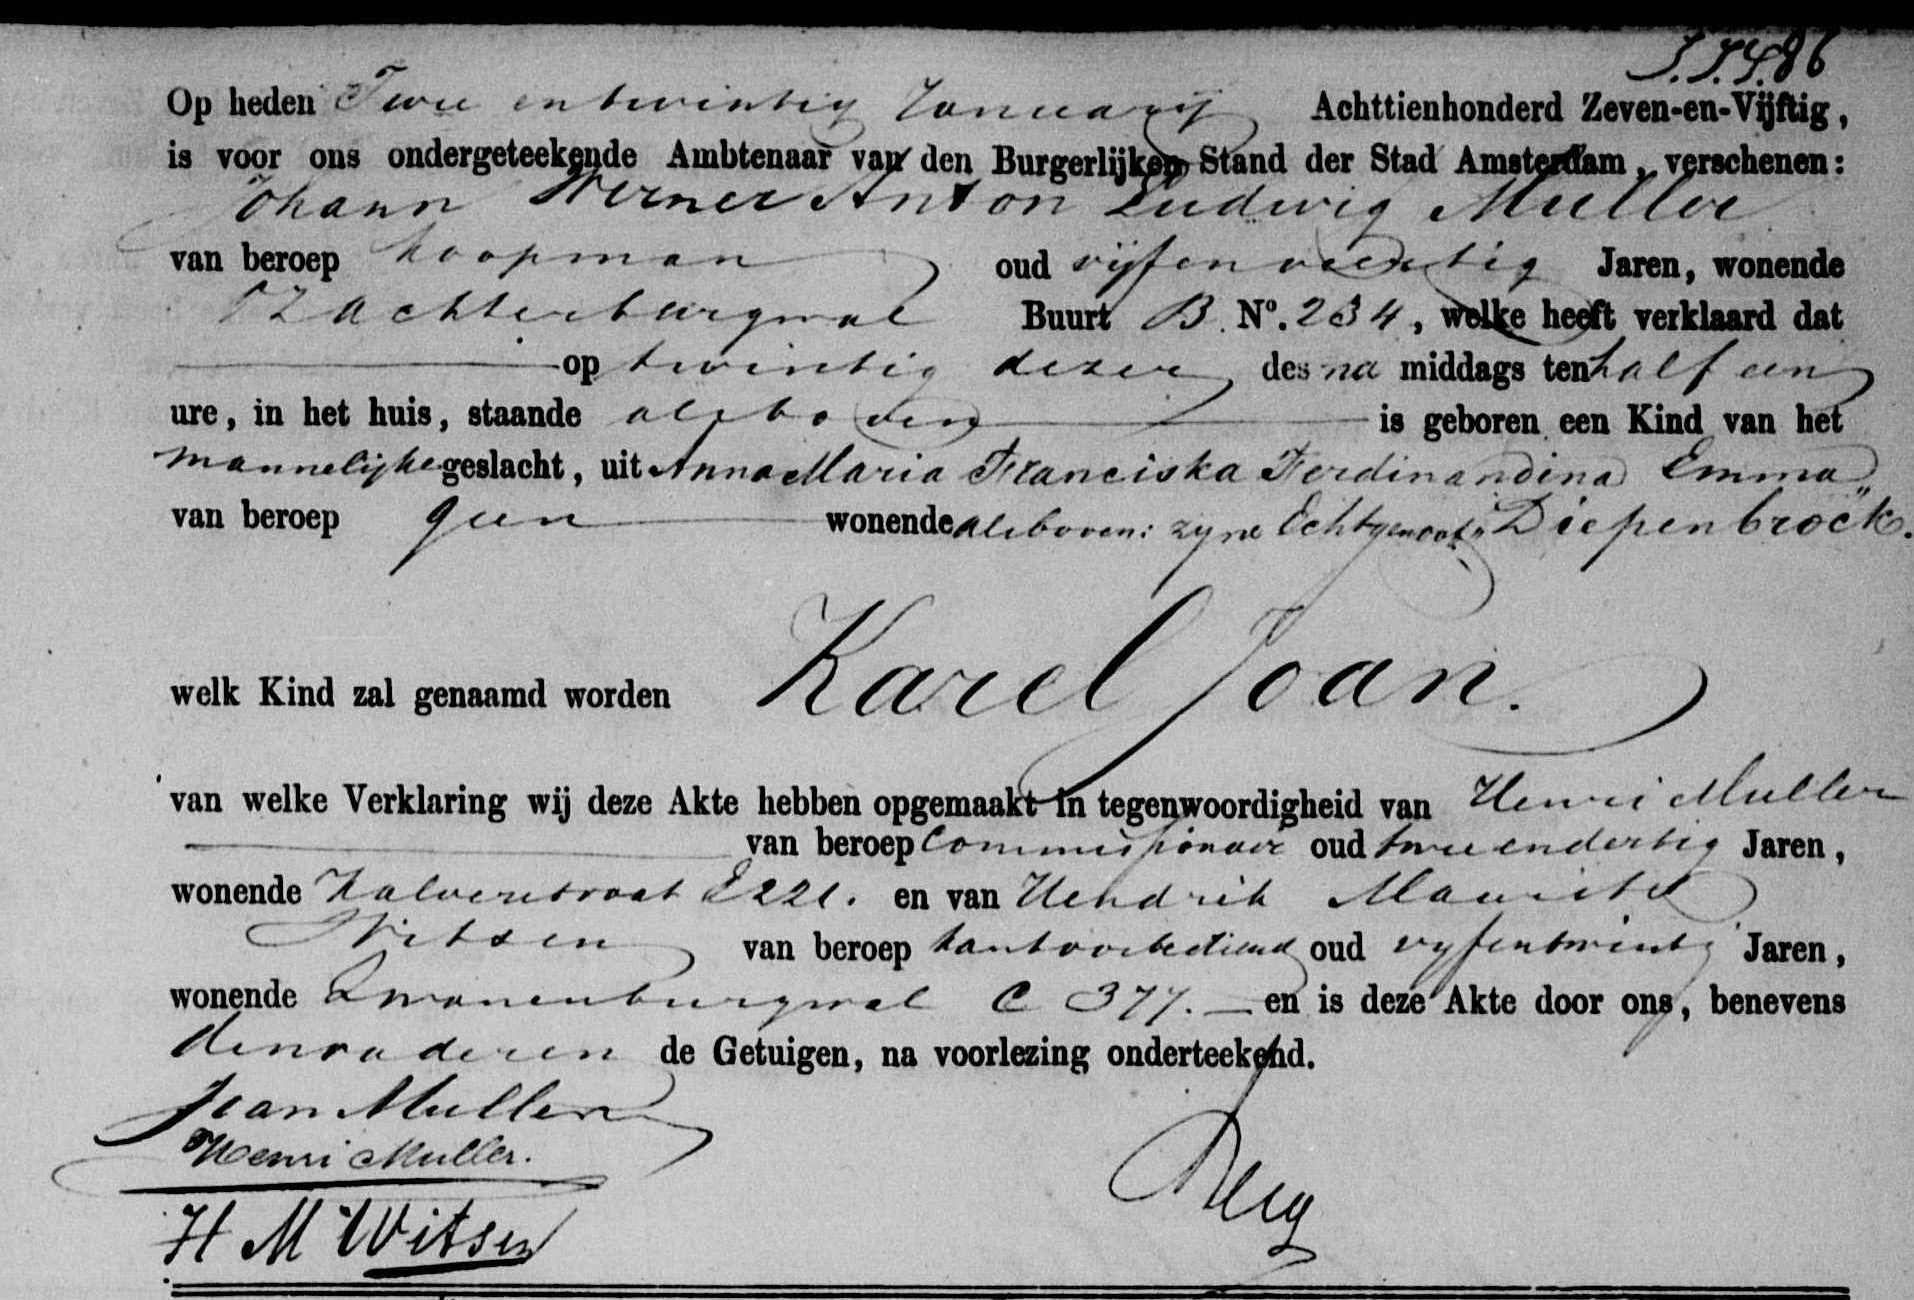 86
Op heden Twee en twintig Januarij Achttienhonderd Zeven-en-Vijftig,
is voor ons ondergeteekende Ambtenaar van den Burgerlijken Stand der Stad Amsterdam, verschenen:
Johann Werner Anton Ludwig Muller
van beroep koopman oud vijfenveertig Jaren, wonende
OZ Achterburgwal Buurt B. Nº. 234, welke heeft verklaard dat
op twintig dezer des na middags ten half een
ure, in het huis, staande alsboven is geboren een Kind van het
mannelijke geslacht, uit Anna Maria Franciska Ferdinandina Emma
van beroep geen wonende alsboven: zyne Echtgenoote Diepenbröck.
welk Kind zal genaamd worden Karel Joan.
van welke Verklaring wij deze Akte hebben opgemaakt in tegenwoordigheid van Henri Muller
van beroep Commissionair oud tweeendertig Jaren,
wonende Kalverstraat E 221. en van Hendrik Maurits
Witsen van beroep kantoorbediend oud vyfentwintig Jaren,
wonende Zwanenburgwal C 377. en is deze Akte door ons, benevens
den vader en de Getuigen, na voorlezing onderteekend.
Jean Muller
Henri Muller.
H M Witsen